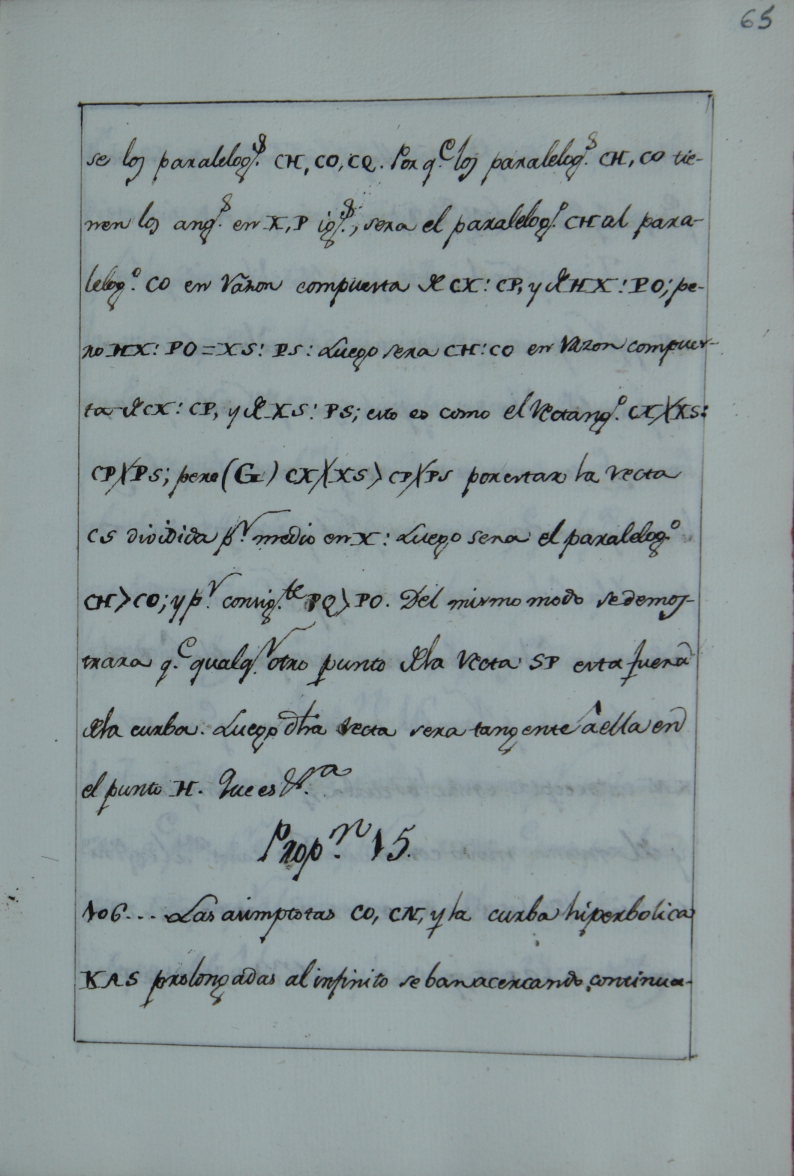 65
se los paralelog.s CH, CO, CQ. Por q.e los paralelog.s CH, CO tie-
nen los ang.s en X, P ig.s, sera el paralelog.o CH al para-
lelog.o CO en razon compuesta de CX: CP, y de HX: PO; pe-
ro HX: PO = XS: PS: Luego sera CH: CO en razon compues-
ta de CX: CP, y de XS: PS; esto es como el rectang.o CX)(XS:
CP)(PS; pero (G) CX)(XS > CP)(PS por estar la recta
CS dividida p.r medio en X: Luego sera el paralelog.o
CH > CO; y p.r consig.te PQ > PO. Del mismo modo se demos-
trara q.e qualq.r otro punto de la recta SP esta fuera
de la curba. Luego dha recta sera tangente à ella en
el punto H. Que es &.a
Prop.n 15.
106... Las asimptotas CO, CN, y la curba hiperbolica
KAS prolongadas al infinito se ban acercando continua-